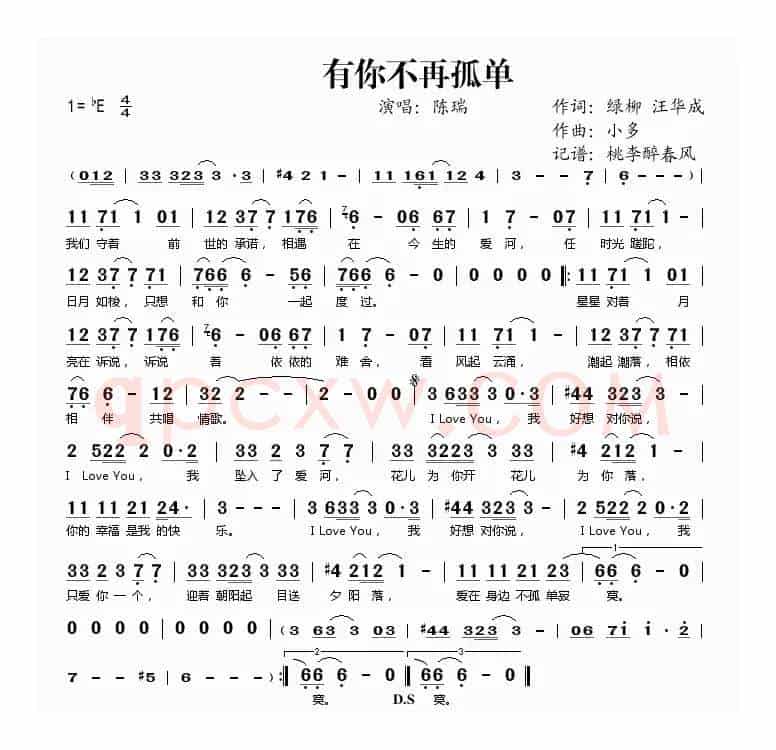 有你不再孤单
1= ♭E 4/4 演唱：陈瑞 作词：绿柳 汪华成
作曲：小多
记谱：桃李醉春风
(012 | 33 323 3 · 3 | #4 2 1 - | 11 161 12 4 | 3 - - 7 | 6 - - - )
11 71 1 01 | 12 37 7 176 | 6 - 06 67 | 1 7 - 07 | 11 71 1 - |
我们 守着 前 世的 承诺， 相遇 在 今 生的 爱 河， 任 时光 蹉跎，
12 37 7 71 | 766 6 - 56 | 766 6 - 0 | 0 0 0 0 |: 11 71 1 01 |
日月 如梭， 只想 和 你 一起 度 过。 星星 对着 月
12 37 7 176 | 6 - 06 66 | 1 7 - 07 | 11 71 1 - | 12 37 7 71 |
亮在 诉说， 诉说 着 依 依的 难 舍， 看 风起 云涌， 潮起 潮落， 相依
76 6 - 12 | 32 2 - - | 2 - 0 0 | 3 633 3 0·3 | #44 323 3 - |
相 伴 共唱 情歌。 I Love You， 我 好想 对你说，
qpcxw.COM
2 522 2 0·2 | 33 2 3 7 7 | 33 3323 3 33 | #4 212 2 - |
I Love You， 我 坠入 了 爱 河， 花儿 为 你开 花儿 为 你 落，
11 11 21 24· | 3 - - - | 3 633 3 0·3 | #44 323 3 - | 2 522 2 0·2 |
你的 幸福 是我 的快 乐。 I Love You， 我 好想 对你说， I Love You， 我
1
33 2 3 7 7 | 33 323 3 33 | #4 212 1 - | 11 11 21 23 | 66 6 - 0 |
只爱 你 一 个， 迎着 朝阳起 目送 夕 阳 落， 爱在 身边 不孤 单寂 寞。
0 0 0 0 | 0 0 0 0 | (3 63 3 03 | #44 323 3 - | 06 7i i · 2 |
2 3
7 - #5 | 6 - - - ) :| 66 6 - 0 | 66 6 - 0 |
寞。 D.S 寞。